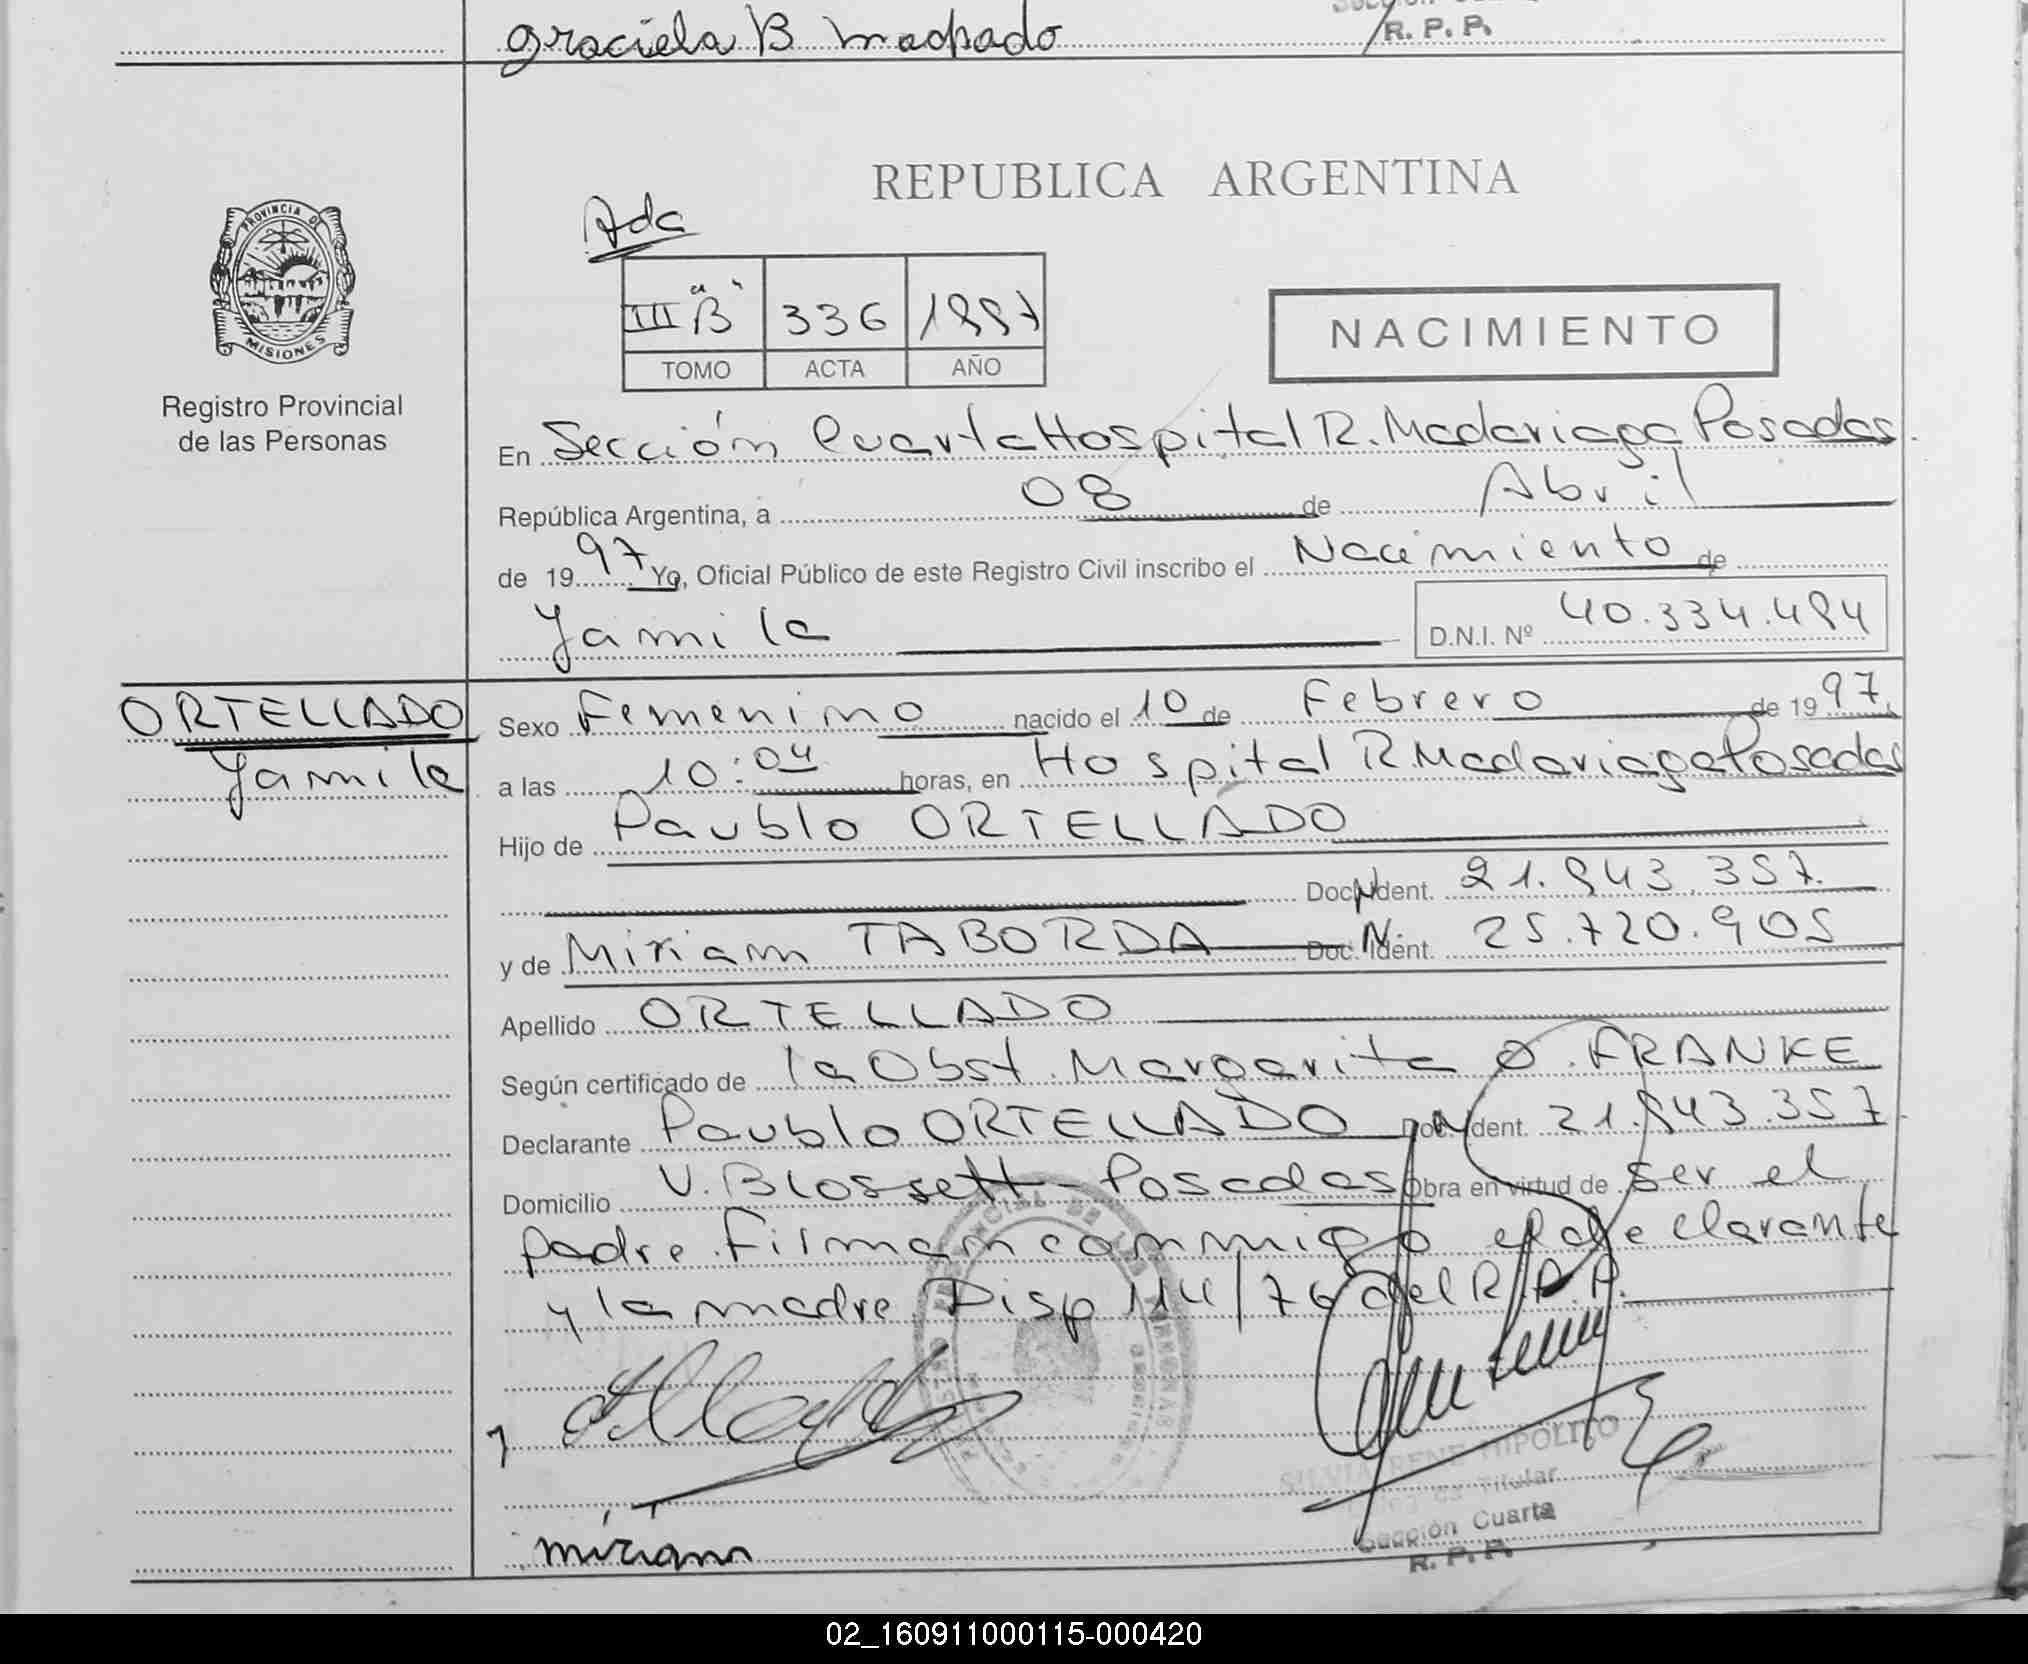 graciela B machado
R. P. P.
REPUBLICA ARGENTINA
Ada
PROVINCIA DE
MISIONES
III "B" 336 1997
TOMO ACTA AÑO
NACIMIENTO
Registro Provincial
de las Personas
En Sección Cuarta Hospital R. Madariaga Posadas.
República Argentina, a 08 de Abril
de 1997 Yo, Oficial Público de este Registro Civil inscribo el Nacimiento de
Yamila D.N.I. Nº 40.334.494
ORTELLADO
Yamila
Sexo Femenino nacido el 10 de Febrero de 1997.
a las 10:04 horas, en Hospital R Madariaga Posadas
Hijo de Paublo ORTELLADO
Doc. Ident. 21.843.357.
y de Miriam TABORDA Doc. Ident. 25.720.905
Apellido ORTELLADO
Según certificado de la Obst. Margarita O. FRANKE
Declarante Paublo ORTELLADO Doc. Ident. 21.843.357.
Domicilio V. Blossett - Posadas Obra en virtud de ser el
padre. Firman conmigo el declarante
y la madre Disp 114/76 del R.P.P.
SILVIA IRENE HIPOLITO
Titular
Sección Cuarta
R. P. P.
miriam
02_160911000115-000420